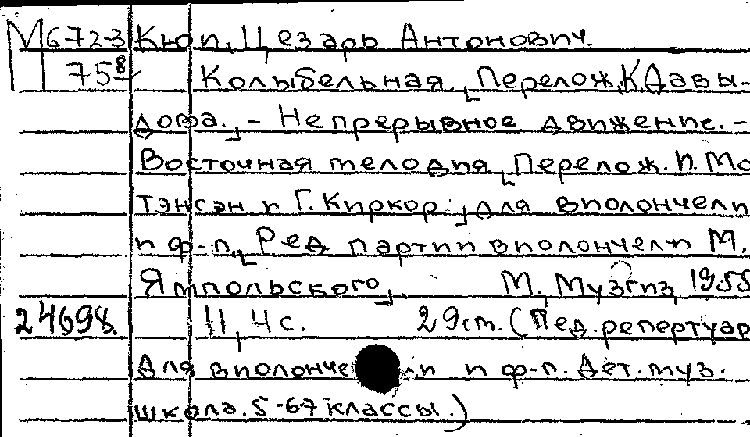 М672-3 Кюи, Цезарь Антонович.
75⁸ Колыбельная, [Перелож. К. Давы-
дова.] - Непрерывное движение. -
Восточная мелодия, [Перелож. П. Мо
тэнсэн и Г. Киркор:] для виолончели
и ф-п. [Ред партии виолончели М.
Ямпольского] М, Музгиз, 1955
24698. 11, 4 с. 29см. (Пед. репертуар
Для виолончели и ф-п. Дет. муз.
школа. 5-67 классы.)